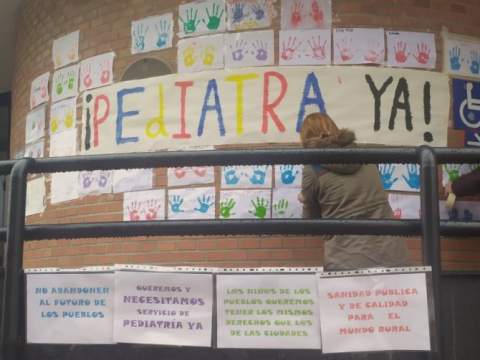 ¡PEdIATRA YA!
NO ABANDONEN
AL FUTURO DE
LOS PUEBLOS
QUEREMOS Y
NECESITAMOS
SERVICIO DE
PEDIATRÍA YA
LOS NIÑOS DE LOS
PUEBLOS QUEREMOS
TENER LOS MISMOS
DERECHOS QUE LOS
DE LAS CIUDADES
SANIDAD PÚBLICA
Y DE CALIDAD
PARA EL
MUNDO RURAL